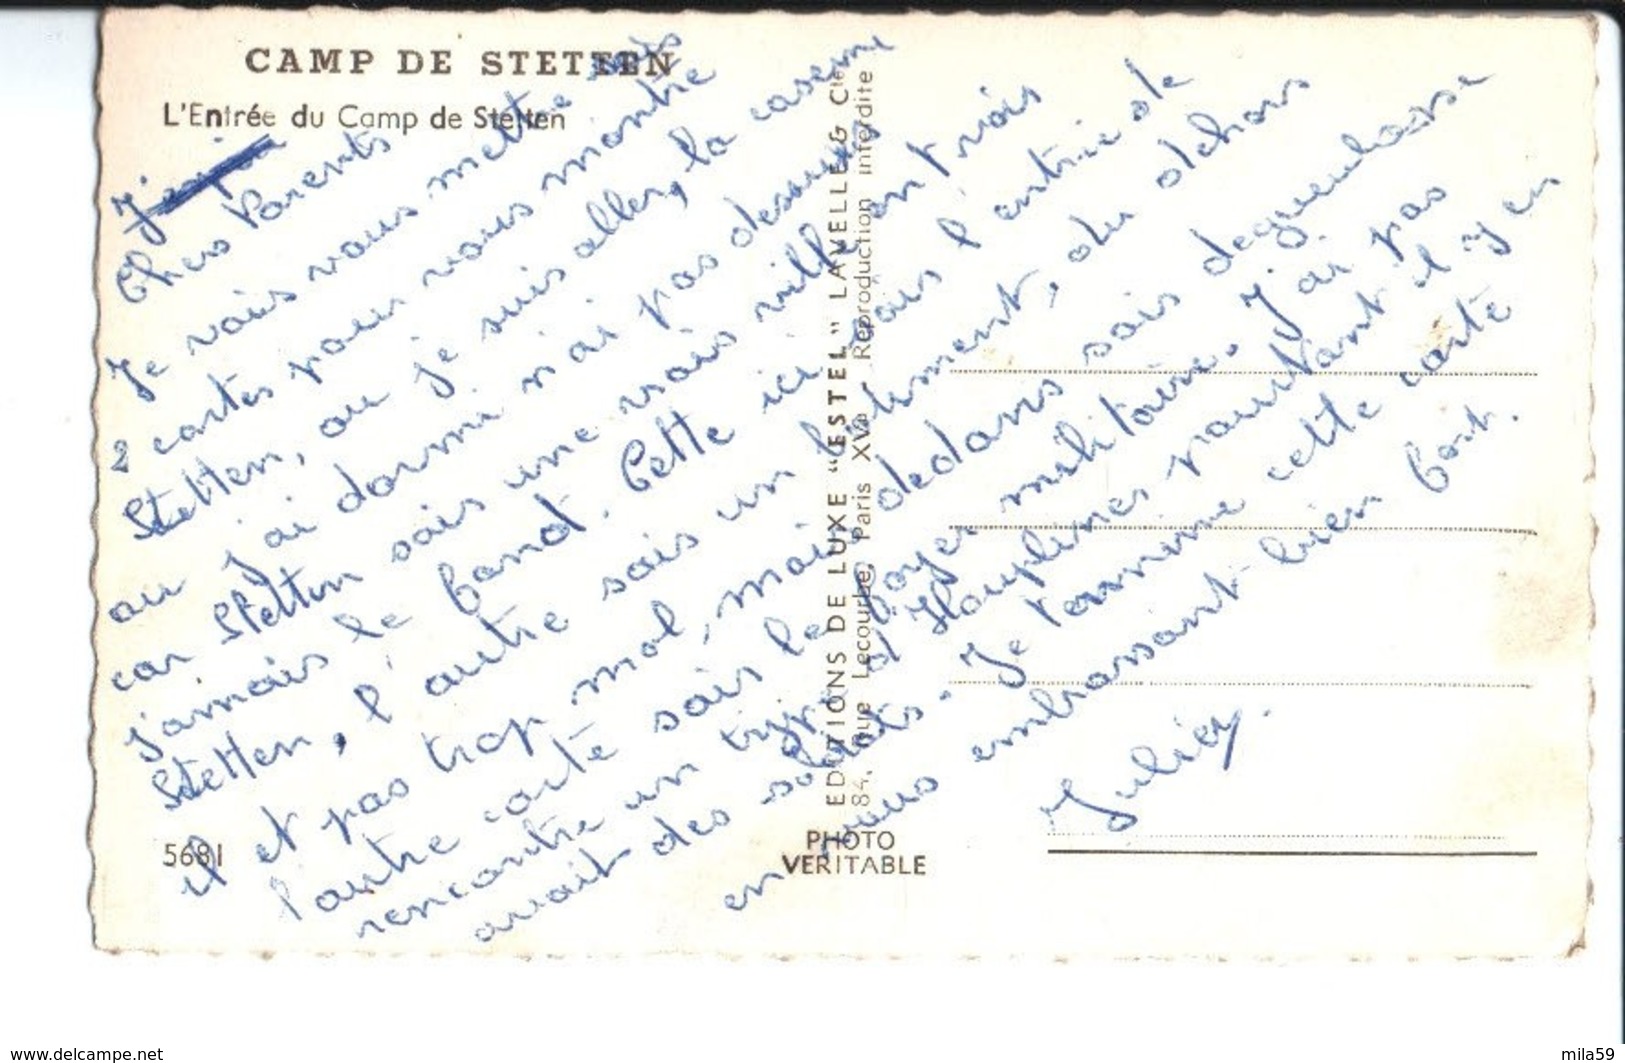 CAMP DE STETTEN
L'Entrée du Camp de Stetten
Chers Parents
Je vais vous mettre ses
2 cartes pour vous montre
Stetten, ou je suis aller, la caserne
ou j'ai dormi n'ai pas dessus
car Stetten sais une vrais ville on trois
j'amais le fond. Cette ici sais l'entrée de
Stetten, l'autre sais un batiment, du dehors
il et pas trop mal, mais dedans sais degueulasse
l'autre carte sais le foyer militaire. J'ai pas
rencontre un type d'Houplines pourtant il y en
avait des soldats. Je termine cette carte
en vous embrassant bien fort.
Julien.
EDITIONS DE LUXE "ESTEL" LAVELLE & Cie
84, Rue Lecourbe, Paris XVe Reproduction interdite
5681
PHOTO
VERITABLE
https://www.delcampe.net
mila59